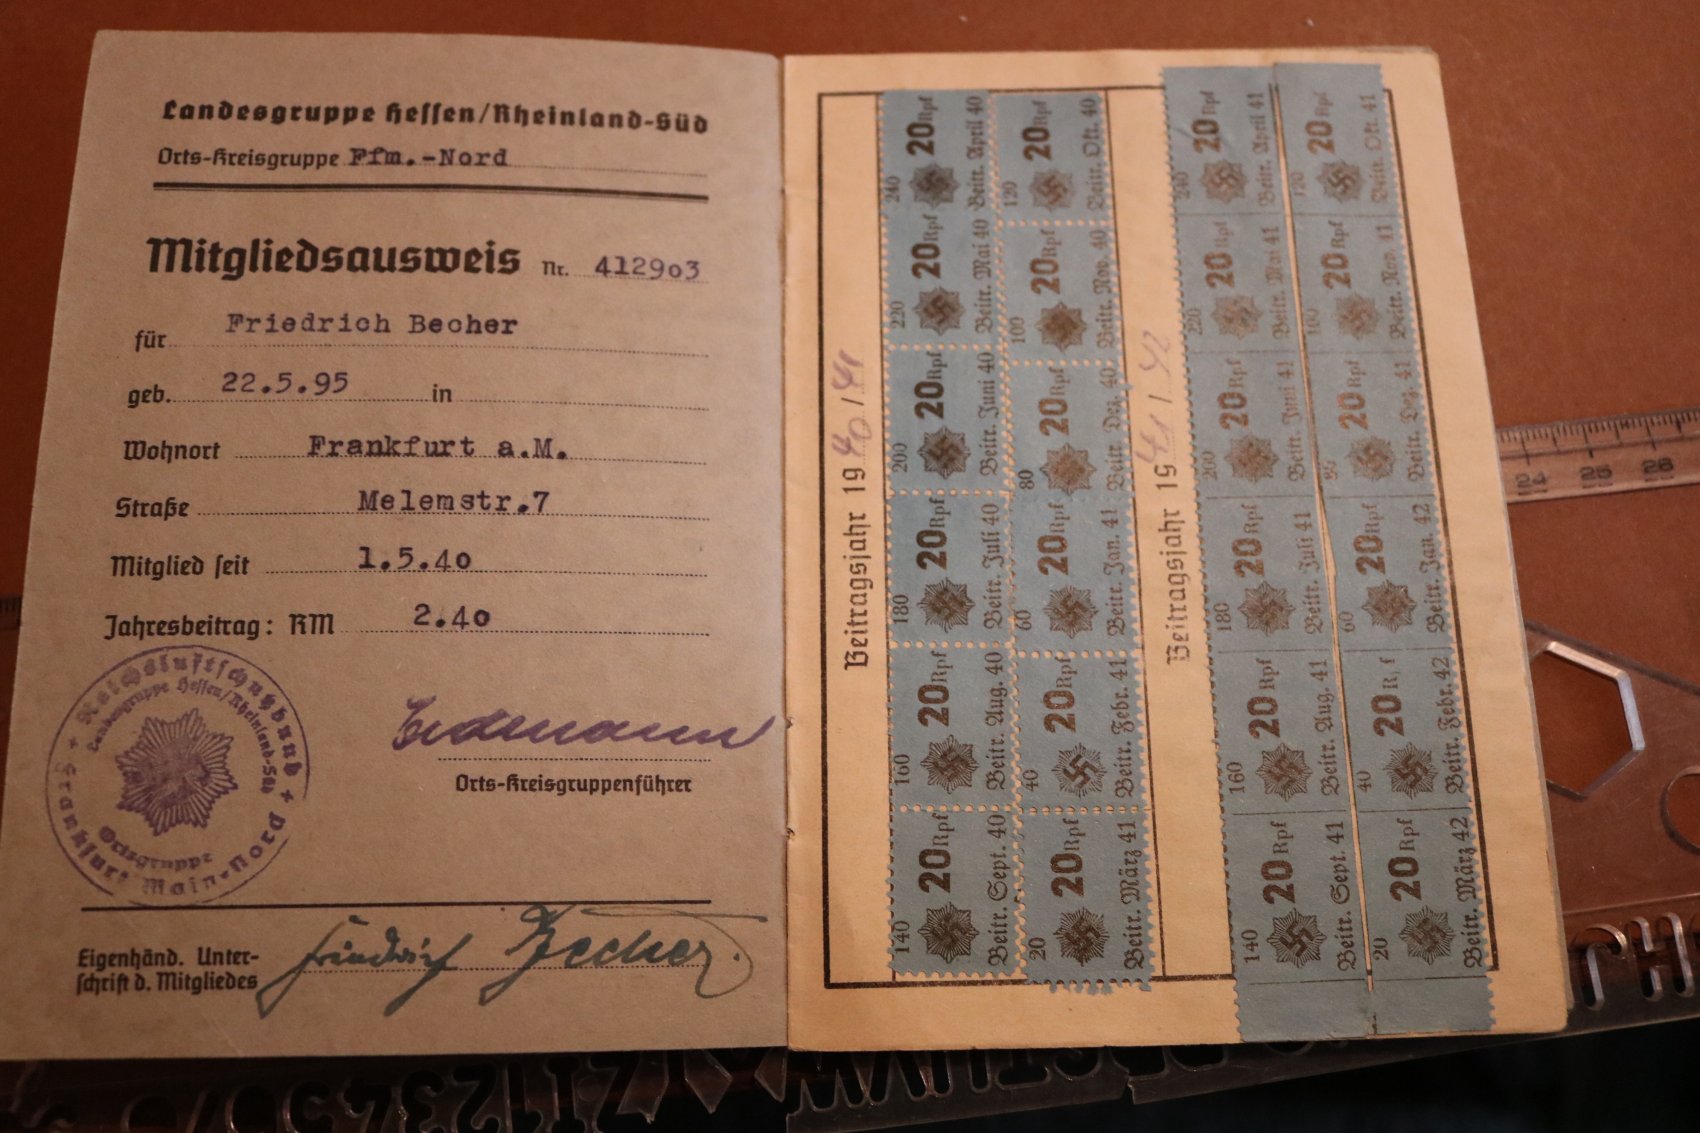 Landesgruppe Hessen/Rheinland-Süd
Orts-Kreisgruppe Ffm.-Nord
Mitgliedsausweis Nr. 412903
für Friedrich Becher
geb. 22.5.95 in
Wohnort Frankfurt a.M.
Straße Melemstr.7
Mitglied seit 1.5.40
Jahresbeitrag: RM 2.40
Reichsluftschutzbund
Landesgruppe Hessen/Rheinland-Süd
Ortsgruppe
Frankfurt Main-Nord
Orts-Kreisgruppenführer
Eigenhänd. Unter-
schrift d. Mitgliedes
Friedrich Becher.
Beitragsjahr 1940/41
240 20 Rpf Beitr. April 40
220 20 Rpf Beitr. Mai 40
200 20 Rpf Beitr. Juni 40
180 20 Rpf Beitr. Juli 40
160 20 Rpf Beitr. Aug. 40
140 20 Rpf Beitr. Sept. 40
120 20 Rpf Beitr. Okt. 40
100 20 Rpf Beitr. Nov. 40
80 20 Rpf Beitr. Dez. 40
60 20 Rpf Beitr. Jan. 41
40 20 Rpf Beitr. Febr. 41
20 20 Rpf Beitr. März 41
Beitragsjahr 1941/42
240 20 Rpf Beitr. April 41
220 20 Rpf Beitr. Mai 41
200 20 Rpf Beitr. Juni 41
180 20 Rpf Beitr. Juli 41
160 20 Rpf Beitr. Aug. 41
140 20 Rpf Beitr. Sept. 41
120 20 Rpf Beitr. Okt. 41
100 20 Rpf Beitr. Nov. 41
80 20 Rpf Beitr. Dez. 41
60 20 Rpf Beitr. Jan. 42
40 20 R f Beitr. Febr. 42
20 20 Rpf Beitr. März 42